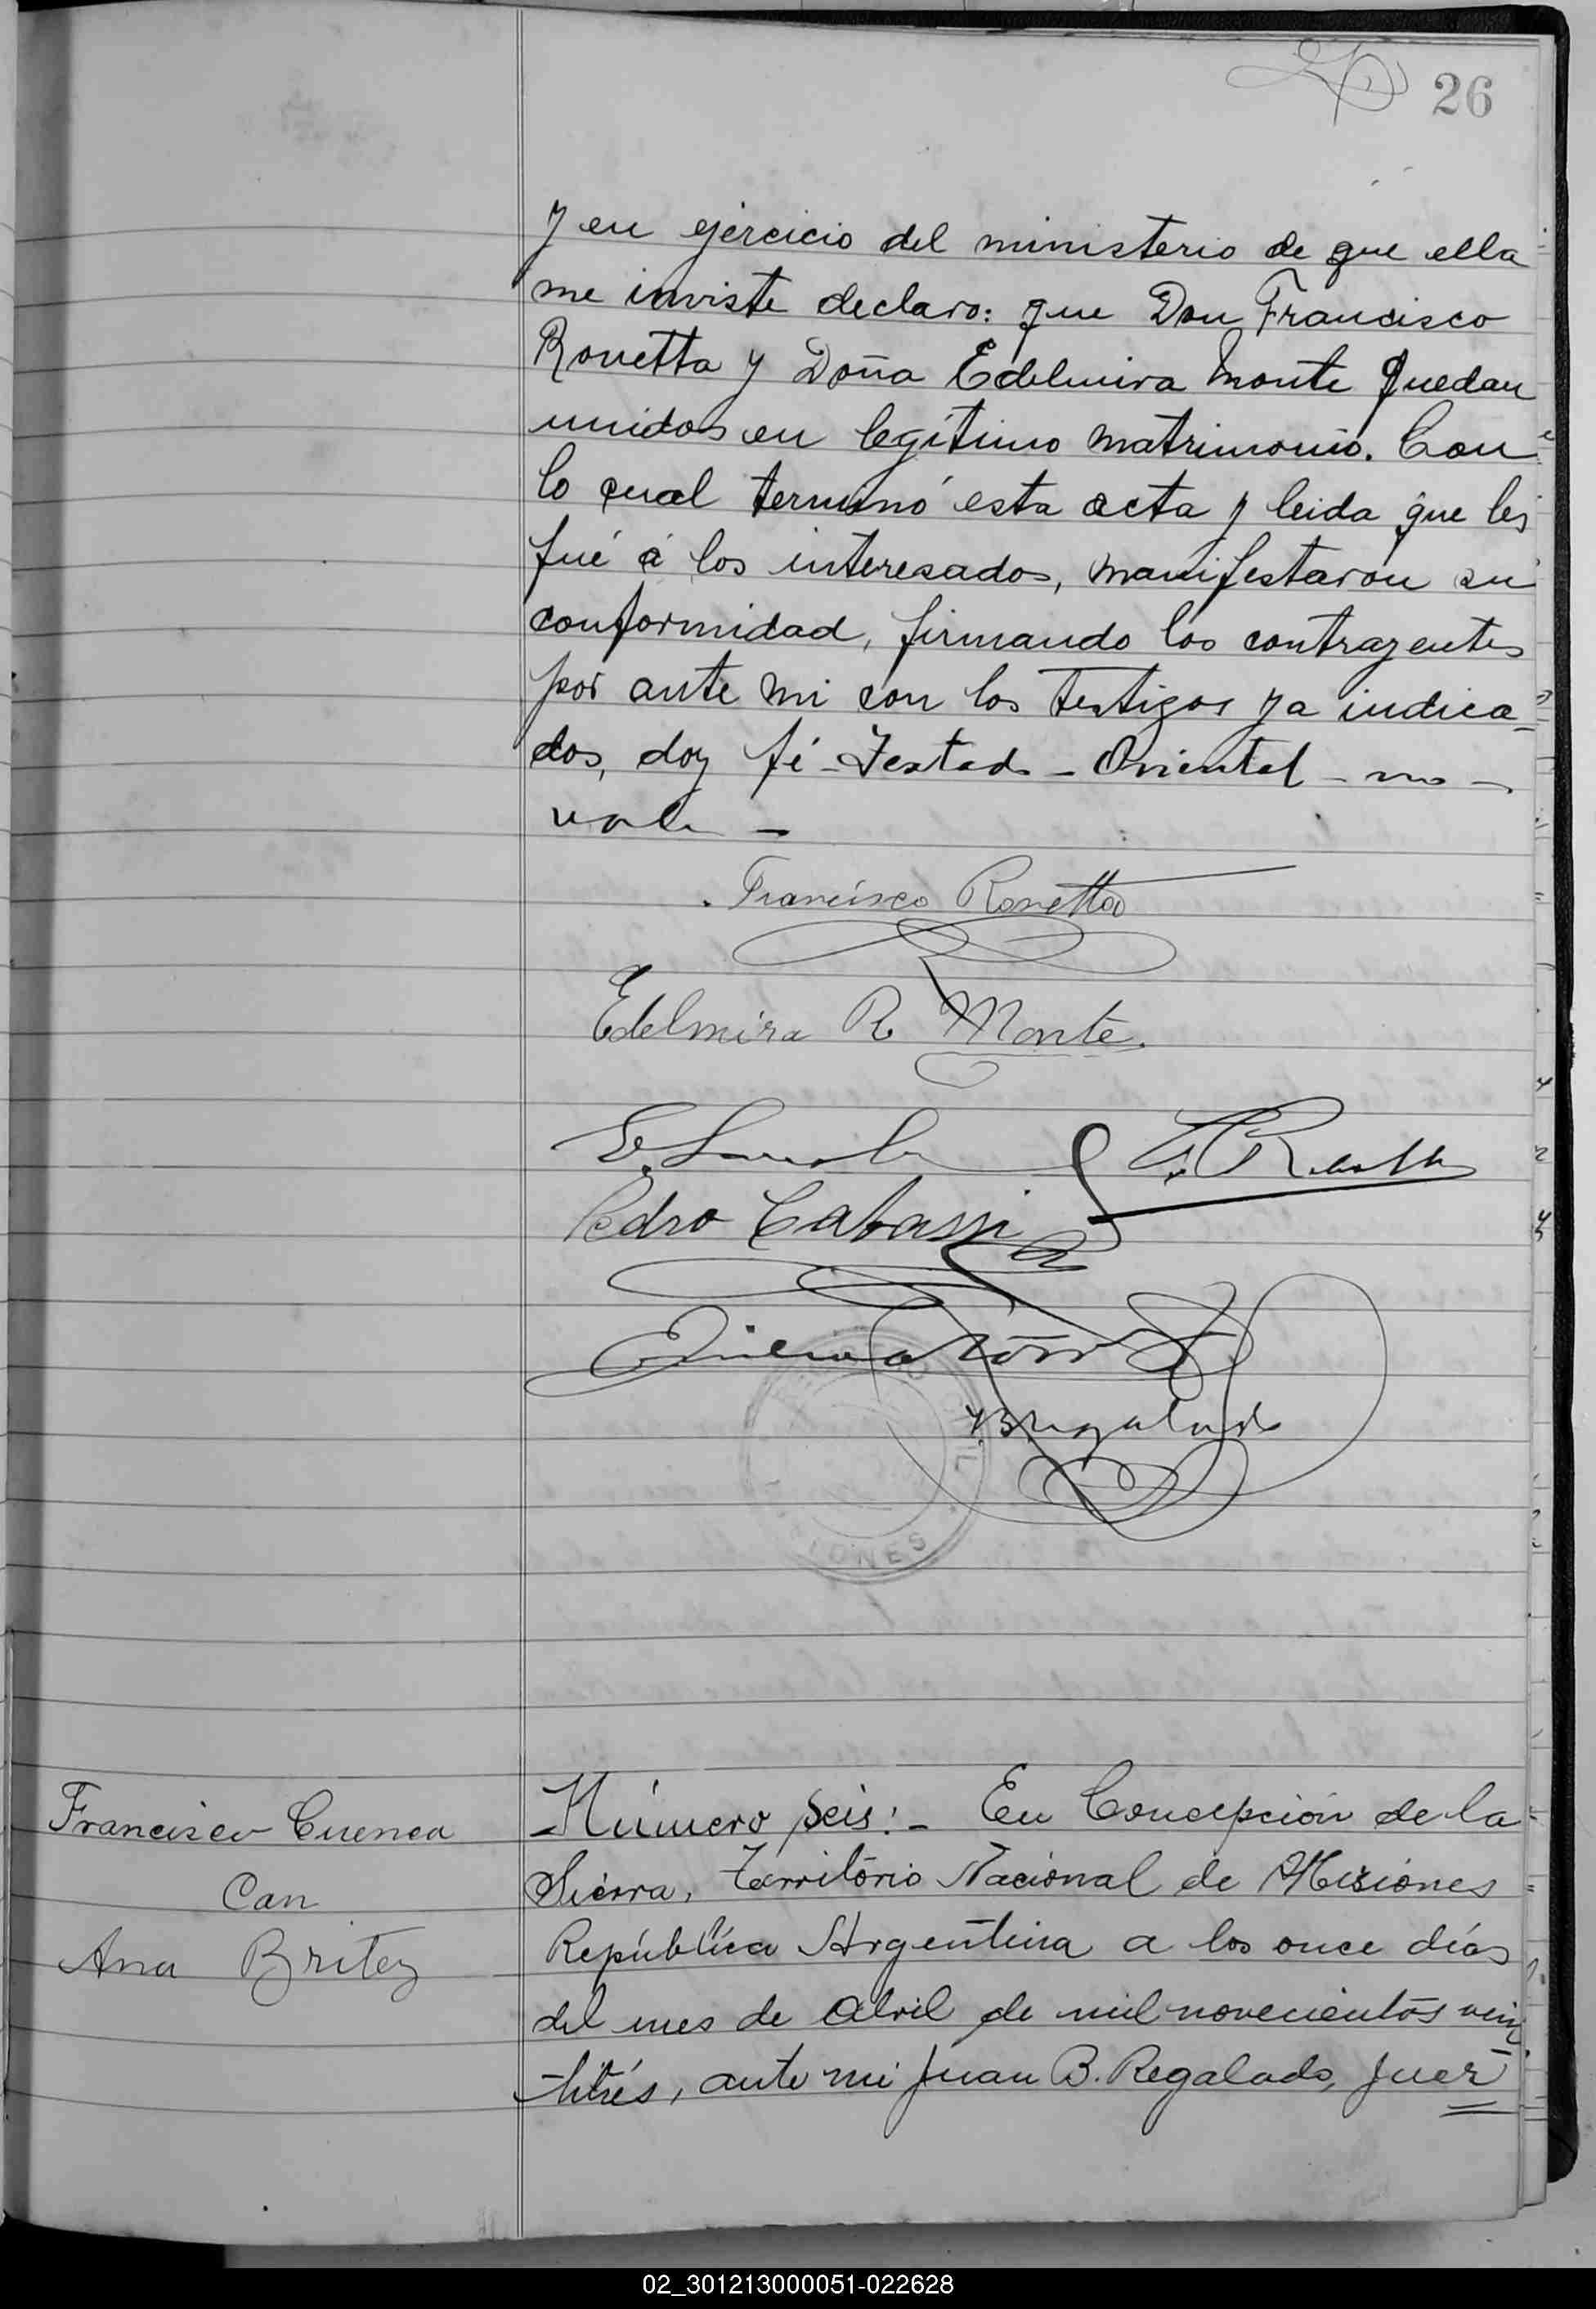 26
y en ejercicio del ministerio de que ella
me inviste declaro: que Don Francisco
Rovetta y Doña Edelmira Monte quedan
unidos en legítimo matrimonio. Con
lo cual terminó esta acta y leida que les
fué á los interesados, manifestaron su
conformidad, firmando los contrayentes
por ante mi con los testigos ya indica-
dos, doy fé - Testado - Oriental - no -
vale -
Francisco Rovetta
Edelmira R Monte.
Pedro Cabassi
Francisco Cuenca
Con
Ana Britez
Número seis: - En Concepción de la
Sierra, Território Nacional de Misiones
República Argentina a los once días
del mes de Abril de mil novecientos vein
titrés, ante mi Juan B. Regalado, Juez
02_301213000051-022628